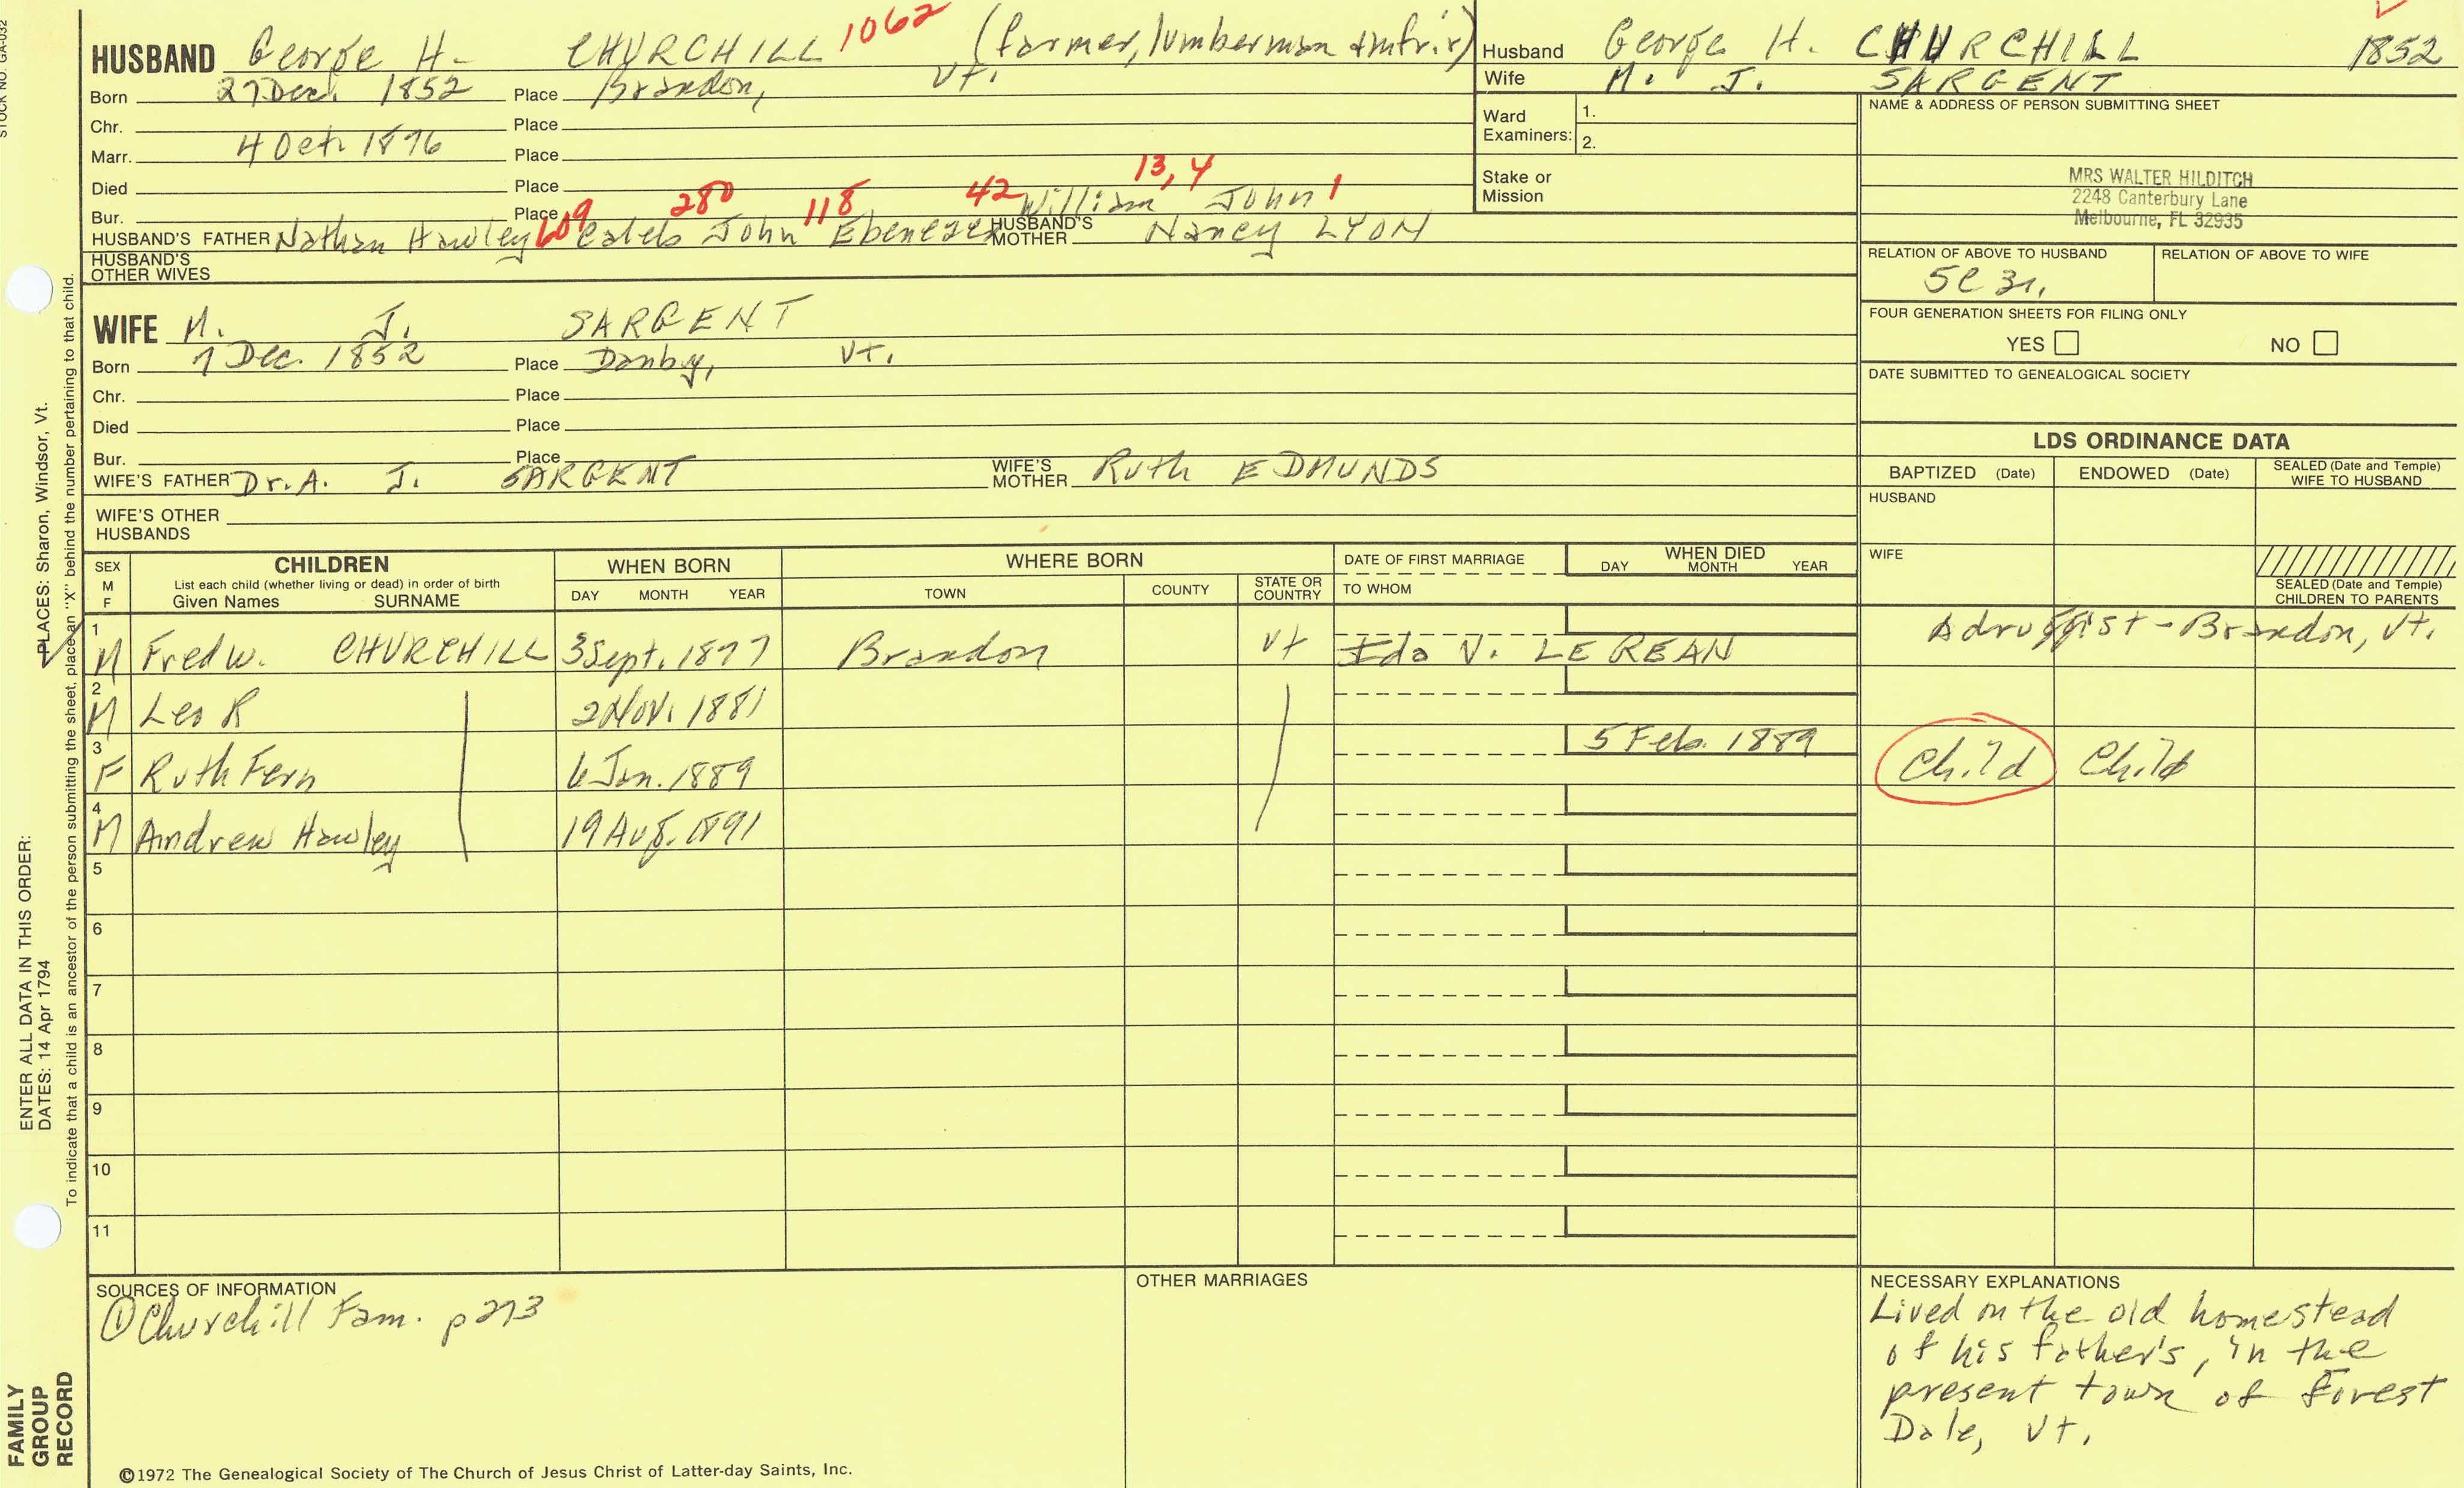 STOCK NO. GA-032
HUSBAND George H. CHURCHILL 1062 (farmer, lumberman & mfr.)
Born 27 Dec. 1852 Place Brandon, Vt.
Chr. Place
Marr. 4 Oct. 1876 Place
Died Place
Bur. Place
42 William 13, 4 John 1
HUSBAND'S FATHER Nathan Hawley 609 Caleb 280 John 118 Ebenezer HUSBAND'S MOTHER Nancy LYON
HUSBAND'S OTHER WIVES
Husband George H. CHURCHILL 1852
Wife M. J. SARGENT
Ward Examiners: 1.
2.
Stake or Mission
NAME & ADDRESS OF PERSON SUBMITTING SHEET
MRS WALTER HILDITCH
2248 Canterbury Lane
Melbourne, FL 32935
RELATION OF ABOVE TO HUSBAND RELATION OF ABOVE TO WIFE
5C 3r.
FOUR GENERATION SHEETS FOR FILING ONLY
YES NO
DATE SUBMITTED TO GENEALOGICAL SOCIETY
WIFE M. J. SARGENT
Born 7 Dec. 1852 Place Danby, Vt.
Chr. Place
Died Place
Bur. Place
WIFE'S FATHER Dr. A. J. SARGENT WIFE'S MOTHER Ruth EDMUNDS
WIFE'S OTHER HUSBANDS
LDS ORDINANCE DATA
BAPTIZED (Date) ENDOWED (Date) SEALED (Date and Temple) WIFE TO HUSBAND
HUSBAND
WIFE
SEALED (Date and Temple) CHILDREN TO PARENTS
SEX M F CHILDREN List each child (whether living or dead) in order of birth Given Names SURNAME WHEN BORN DAY MONTH YEAR WHERE BORN TOWN COUNTY STATE OR COUNTRY DATE OF FIRST MARRIAGE TO WHOM WHEN DIED DAY MONTH YEAR
1 M Fred W. CHURCHILL 3 Sept. 1877 Brandon Vt Ida V. LE REAN A druggist - Brandon, Vt.
2 M Leo R 2 Nov. 1881
3 F Ruth Fern 6 Jan. 1889 5 Feb. 1889 Child Child
4 M Andrew Hawley 19 Aug. 1891
5
6
7
8
9
10
11
SOURCES OF INFORMATION
① Churchill Fam. p 273
OTHER MARRIAGES
NECESSARY EXPLANATIONS
Lived on the old homestead
of his father's, in the
present town of Forest
Dale, Vt.
©1972 The Genealogical Society of The Church of Jesus Christ of Latter-day Saints, Inc.
FAMILY GROUP RECORD
ENTER ALL DATA IN THIS ORDER:
DATES: 14 Apr 1794
PLACES: Sharon, Windsor, Vt.
To indicate that a child is an ancestor of the person submitting the sheet, place an "X" behind the number pertaining to that child.